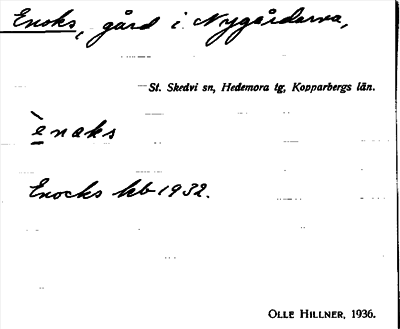 Enoks, gård i Nygårdarna,
St. Skedvi sn, Hedemora tg, Kopparbergs län.
ènoks
Enocks kb 1932.
OLLE HILLNER, 1936.